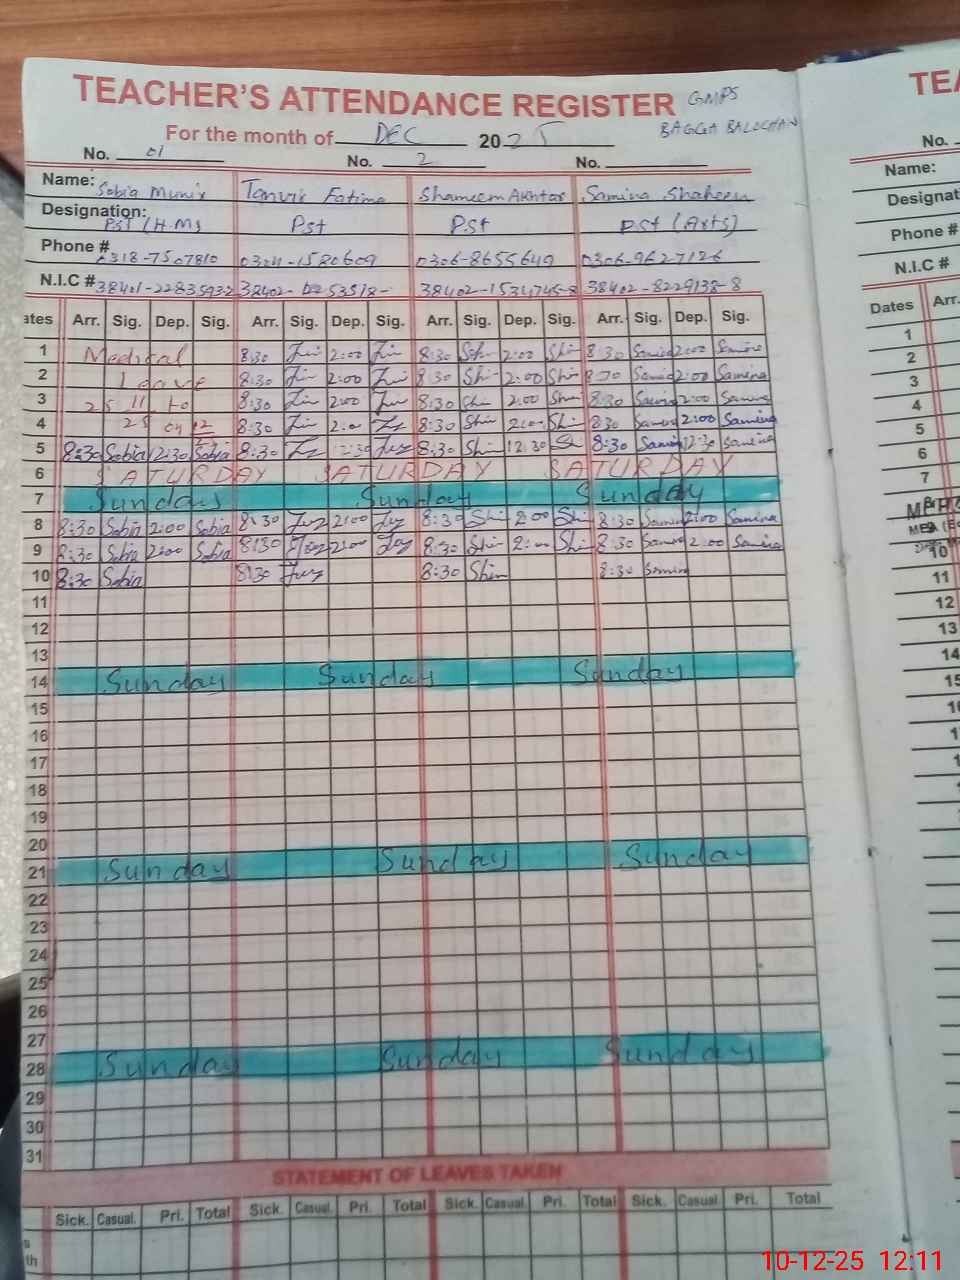 TEACHER'S ATTENDANCE REGISTER GMPS
For the month of DEC 2025 BAGGA BALOCHAN
No. 01 No. 2 No.
Name: Sobia Munir Tanvir Fatima Shameem Akhtar Samina Shaheen
Designation: PST (H.M) Pst Pst Pst (Arts)
Phone # 0318-7507810 0304-1580609 0306-8655649 0306-9627126
N.I.C # 38401-22835932 38402- 38402-1534745-8 38402-8229138-8
ates Arr. Sig. Dep. Sig. Arr. Sig. Dep. Sig. Arr. Sig. Dep. Sig. Arr. Sig. Dep. Sig.
1 Medical 8:30 2:00 8:30 Shi 2:00 Shi 8:30 Samina 2:00 Samina
2 Leave 8:30 2:00 8:30 Shi 2:00 Shi 8:30 Samina 2:00 Samina
3 25 11 to 8:30 2:00 8:30 Shi 2:00 Shi 8:30 Samina 2:00 Samina
4 25 04 12 8:30 2:00 8:30 Shi 2:00 Shi 8:30 Samina 2:00 Samina
5 8:30 Sobia 12:30 Sobia 8:30 12:30 8:30 Shi 12:30 Shi 8:30 Samina 12:30 Samina
6 SATURDAY SATURDAY SATURDAY
7 Sunday Sunday Sunday
8 8:30 Sobia 2:00 Sobia 8:30 2:00 8:30 Shi 2:00 Shi 8:30 Samina 2:00 Samina
9 8:30 Sobia 2:00 Sobia 8:30 2:00 8:30 Shi 2:00 Shi 8:30 Samina 2:00 Samina
10 8:30 Sobia 8:30 8:30 Shi 8:30 Samina
11
12
13
14 Sunday Sunday Sunday
15
16
17
18
19
20
21 Sunday Sunday Sunday
22
23
24
25
26
27
28 Sunday Sunday Sunday
29
30
31
STATEMENT OF LEAVES TAKEN
Sick. Casual. Pri. Total Sick. Casual. Pri. Total Sick. Casual. Pri. Total Sick. Casual. Pri. Total
th
TEA
No.
Name:
Designat
Phone #
N.I.C #
Dates Arr.
1
2
3
4
5
6
7
10
11
12
13
14
15
10-12-25 12:11